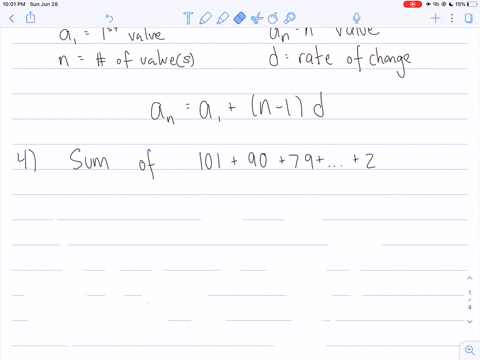 10:01 PM Sun Jun 28
15%
a₁ = 1st value
n = # of value(s)
d = rate of change
aₙ = a₁ + (n-1) d
4) Sum of 101 + 90 + 79 + ... + 2
1
/
4